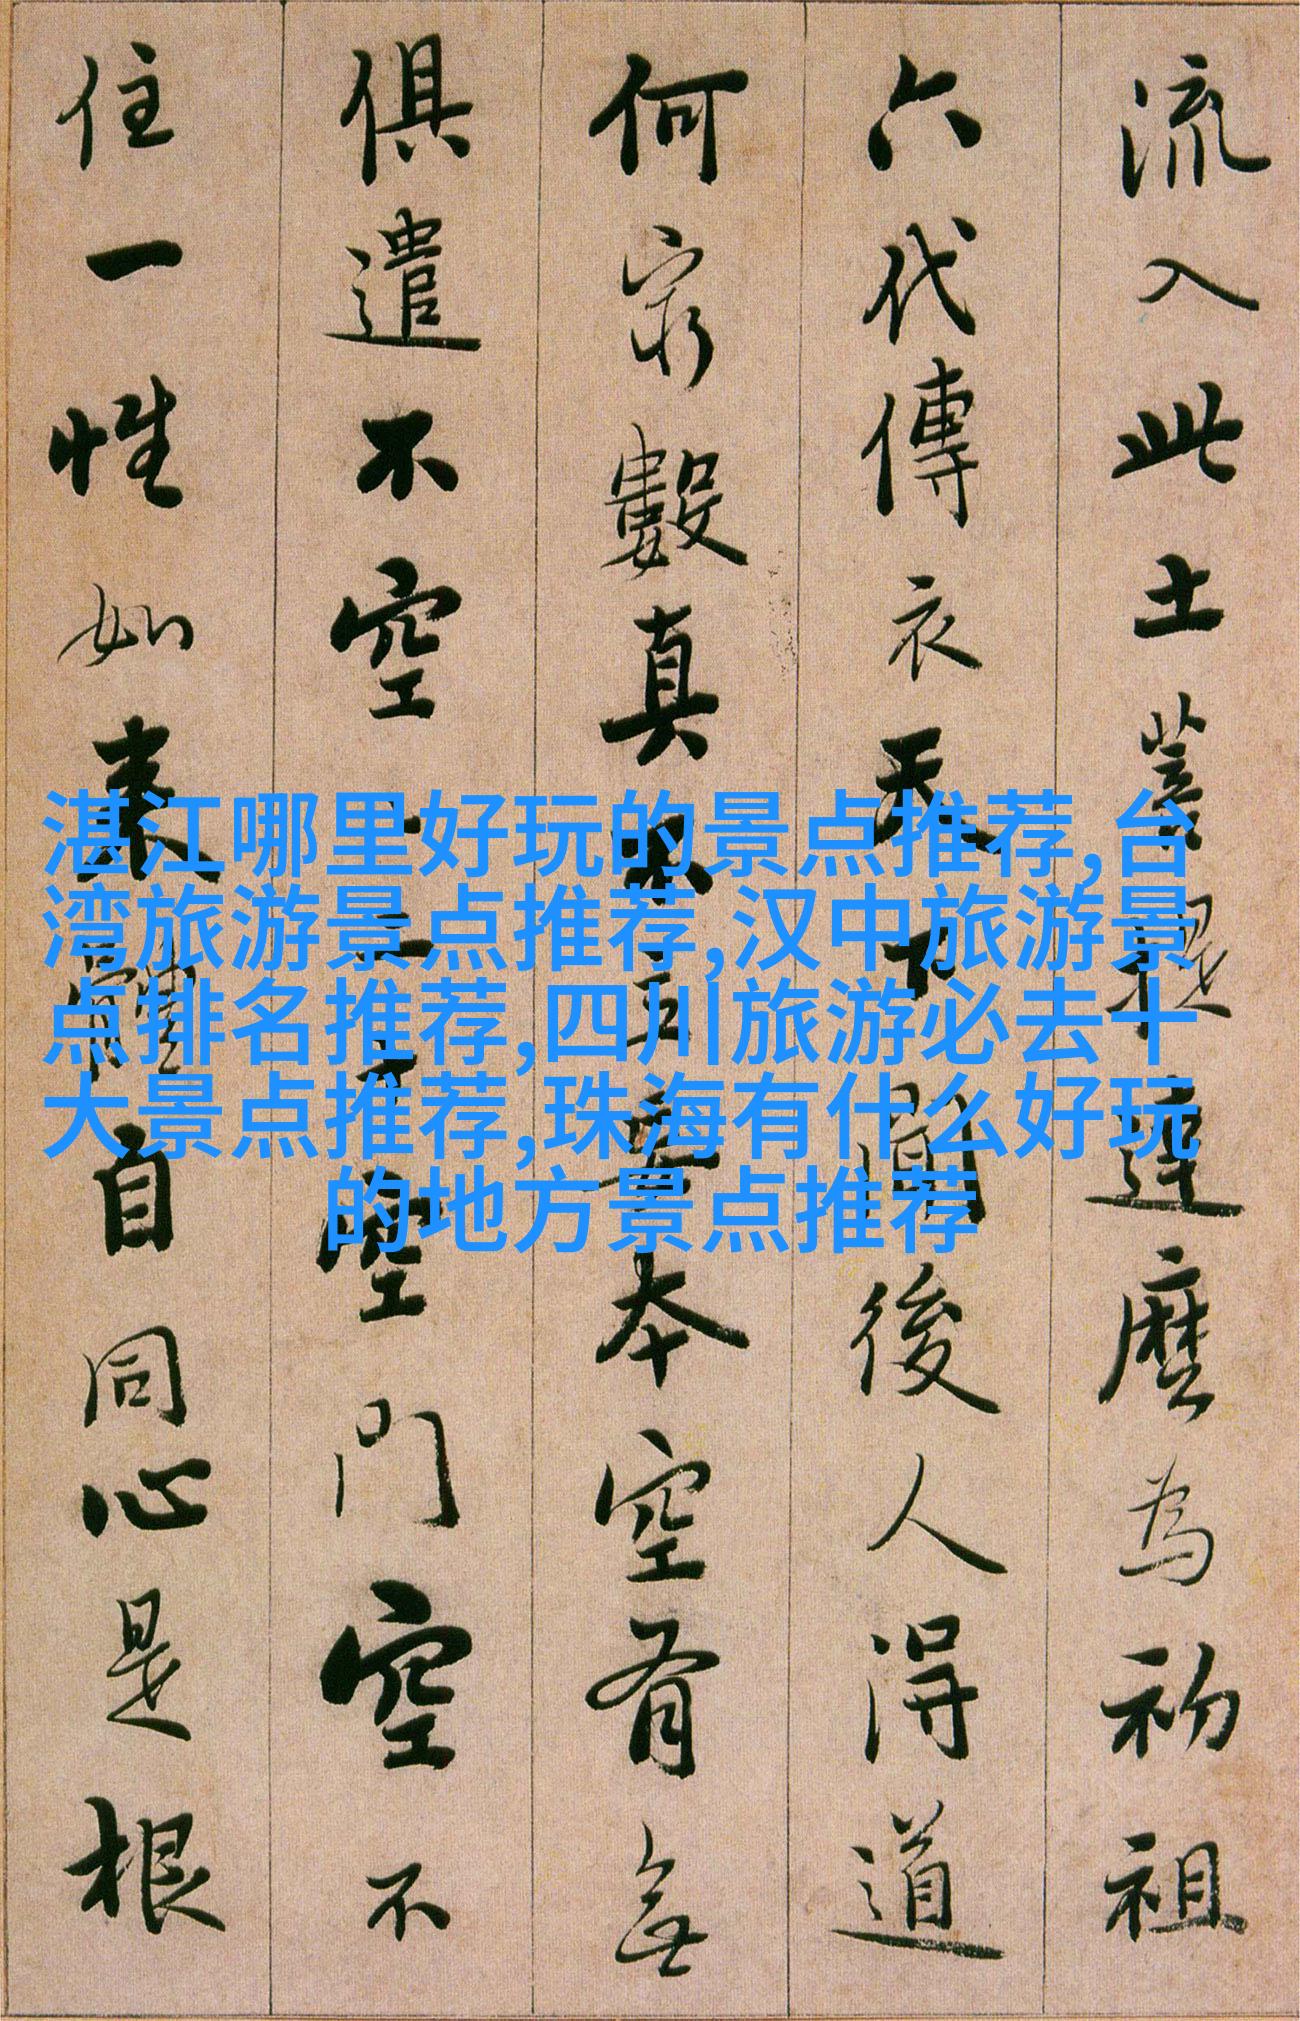 流入此土菩提達磨為初祖
六代傳衣天下聞後人得道
何窮數真不立妄本空有無
俱遣不空二十空門空不
住一性如来體自同心是根
湛江哪里好玩的景点推荐,台
湾旅游景点推荐,汉中旅游景
点排名推荐,四川旅游必去十
大景点推荐,珠海有什么好玩
的地方景点推荐